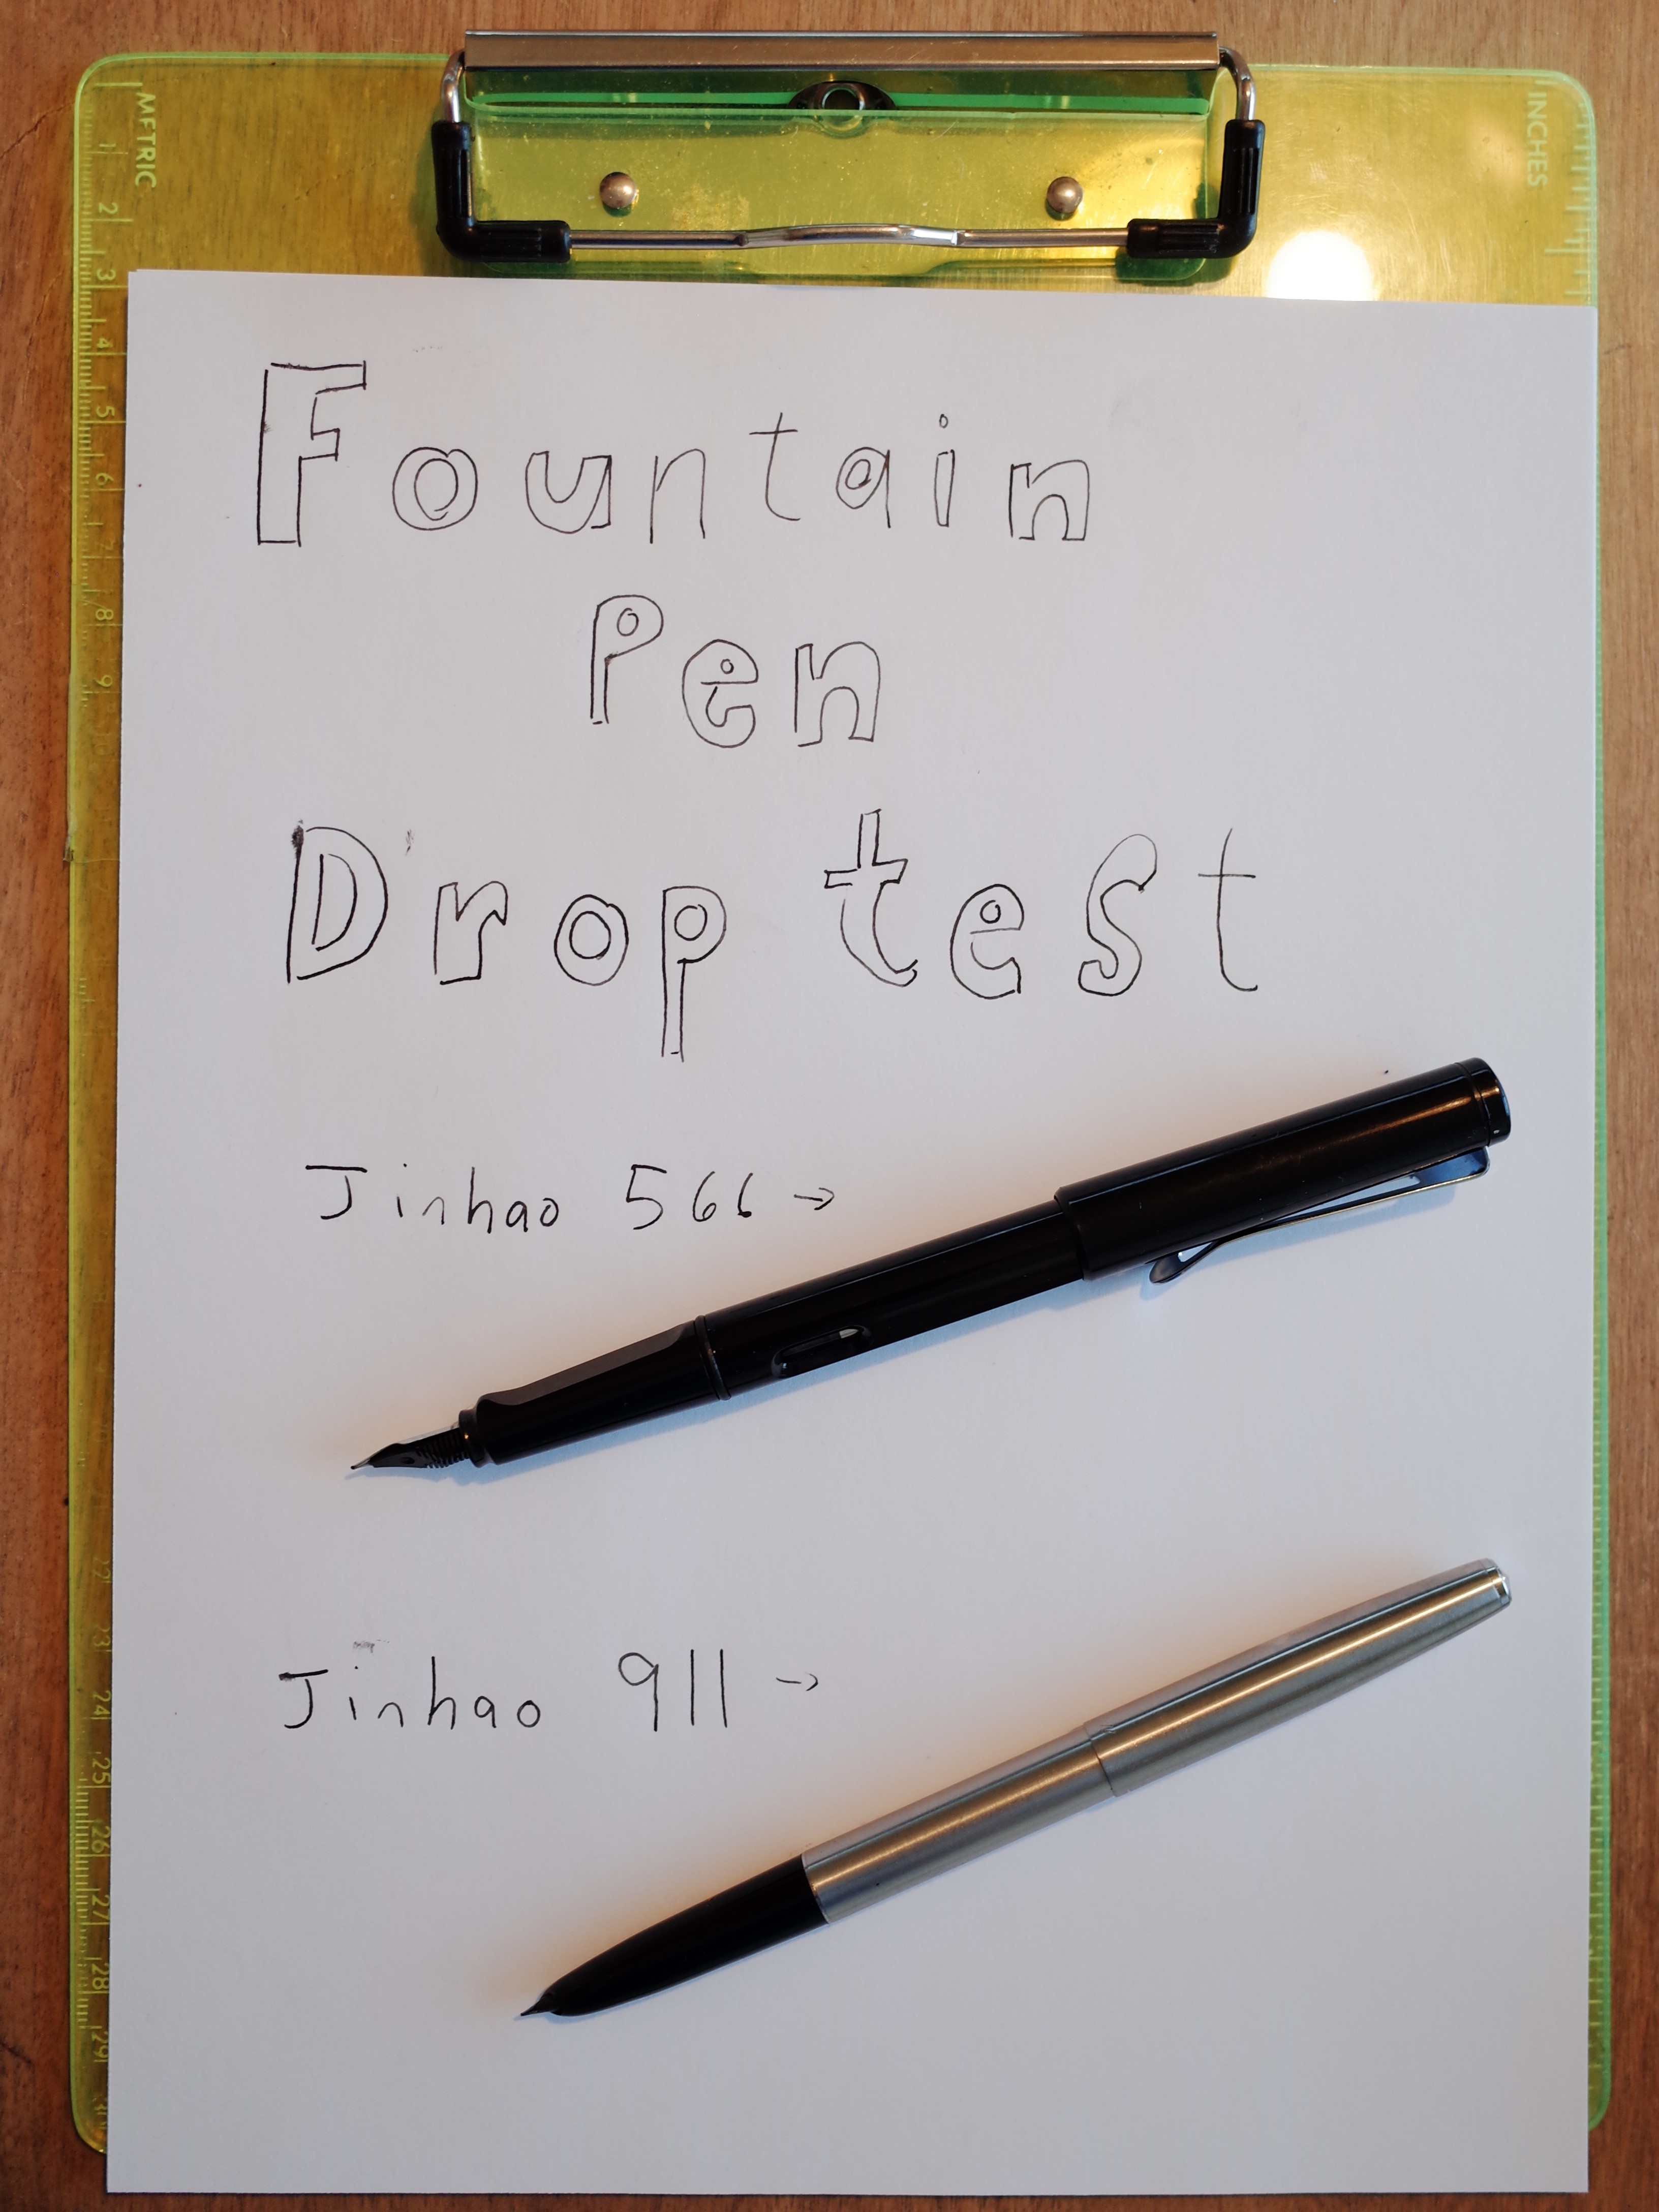 METRIC
INCHES
1
2
3
4
5
6
7
8
9
10
22
23
24
25
26
27
28
29
Fountain
Pen
Drop test
Jinhao 566 →
Jinhao 911 →